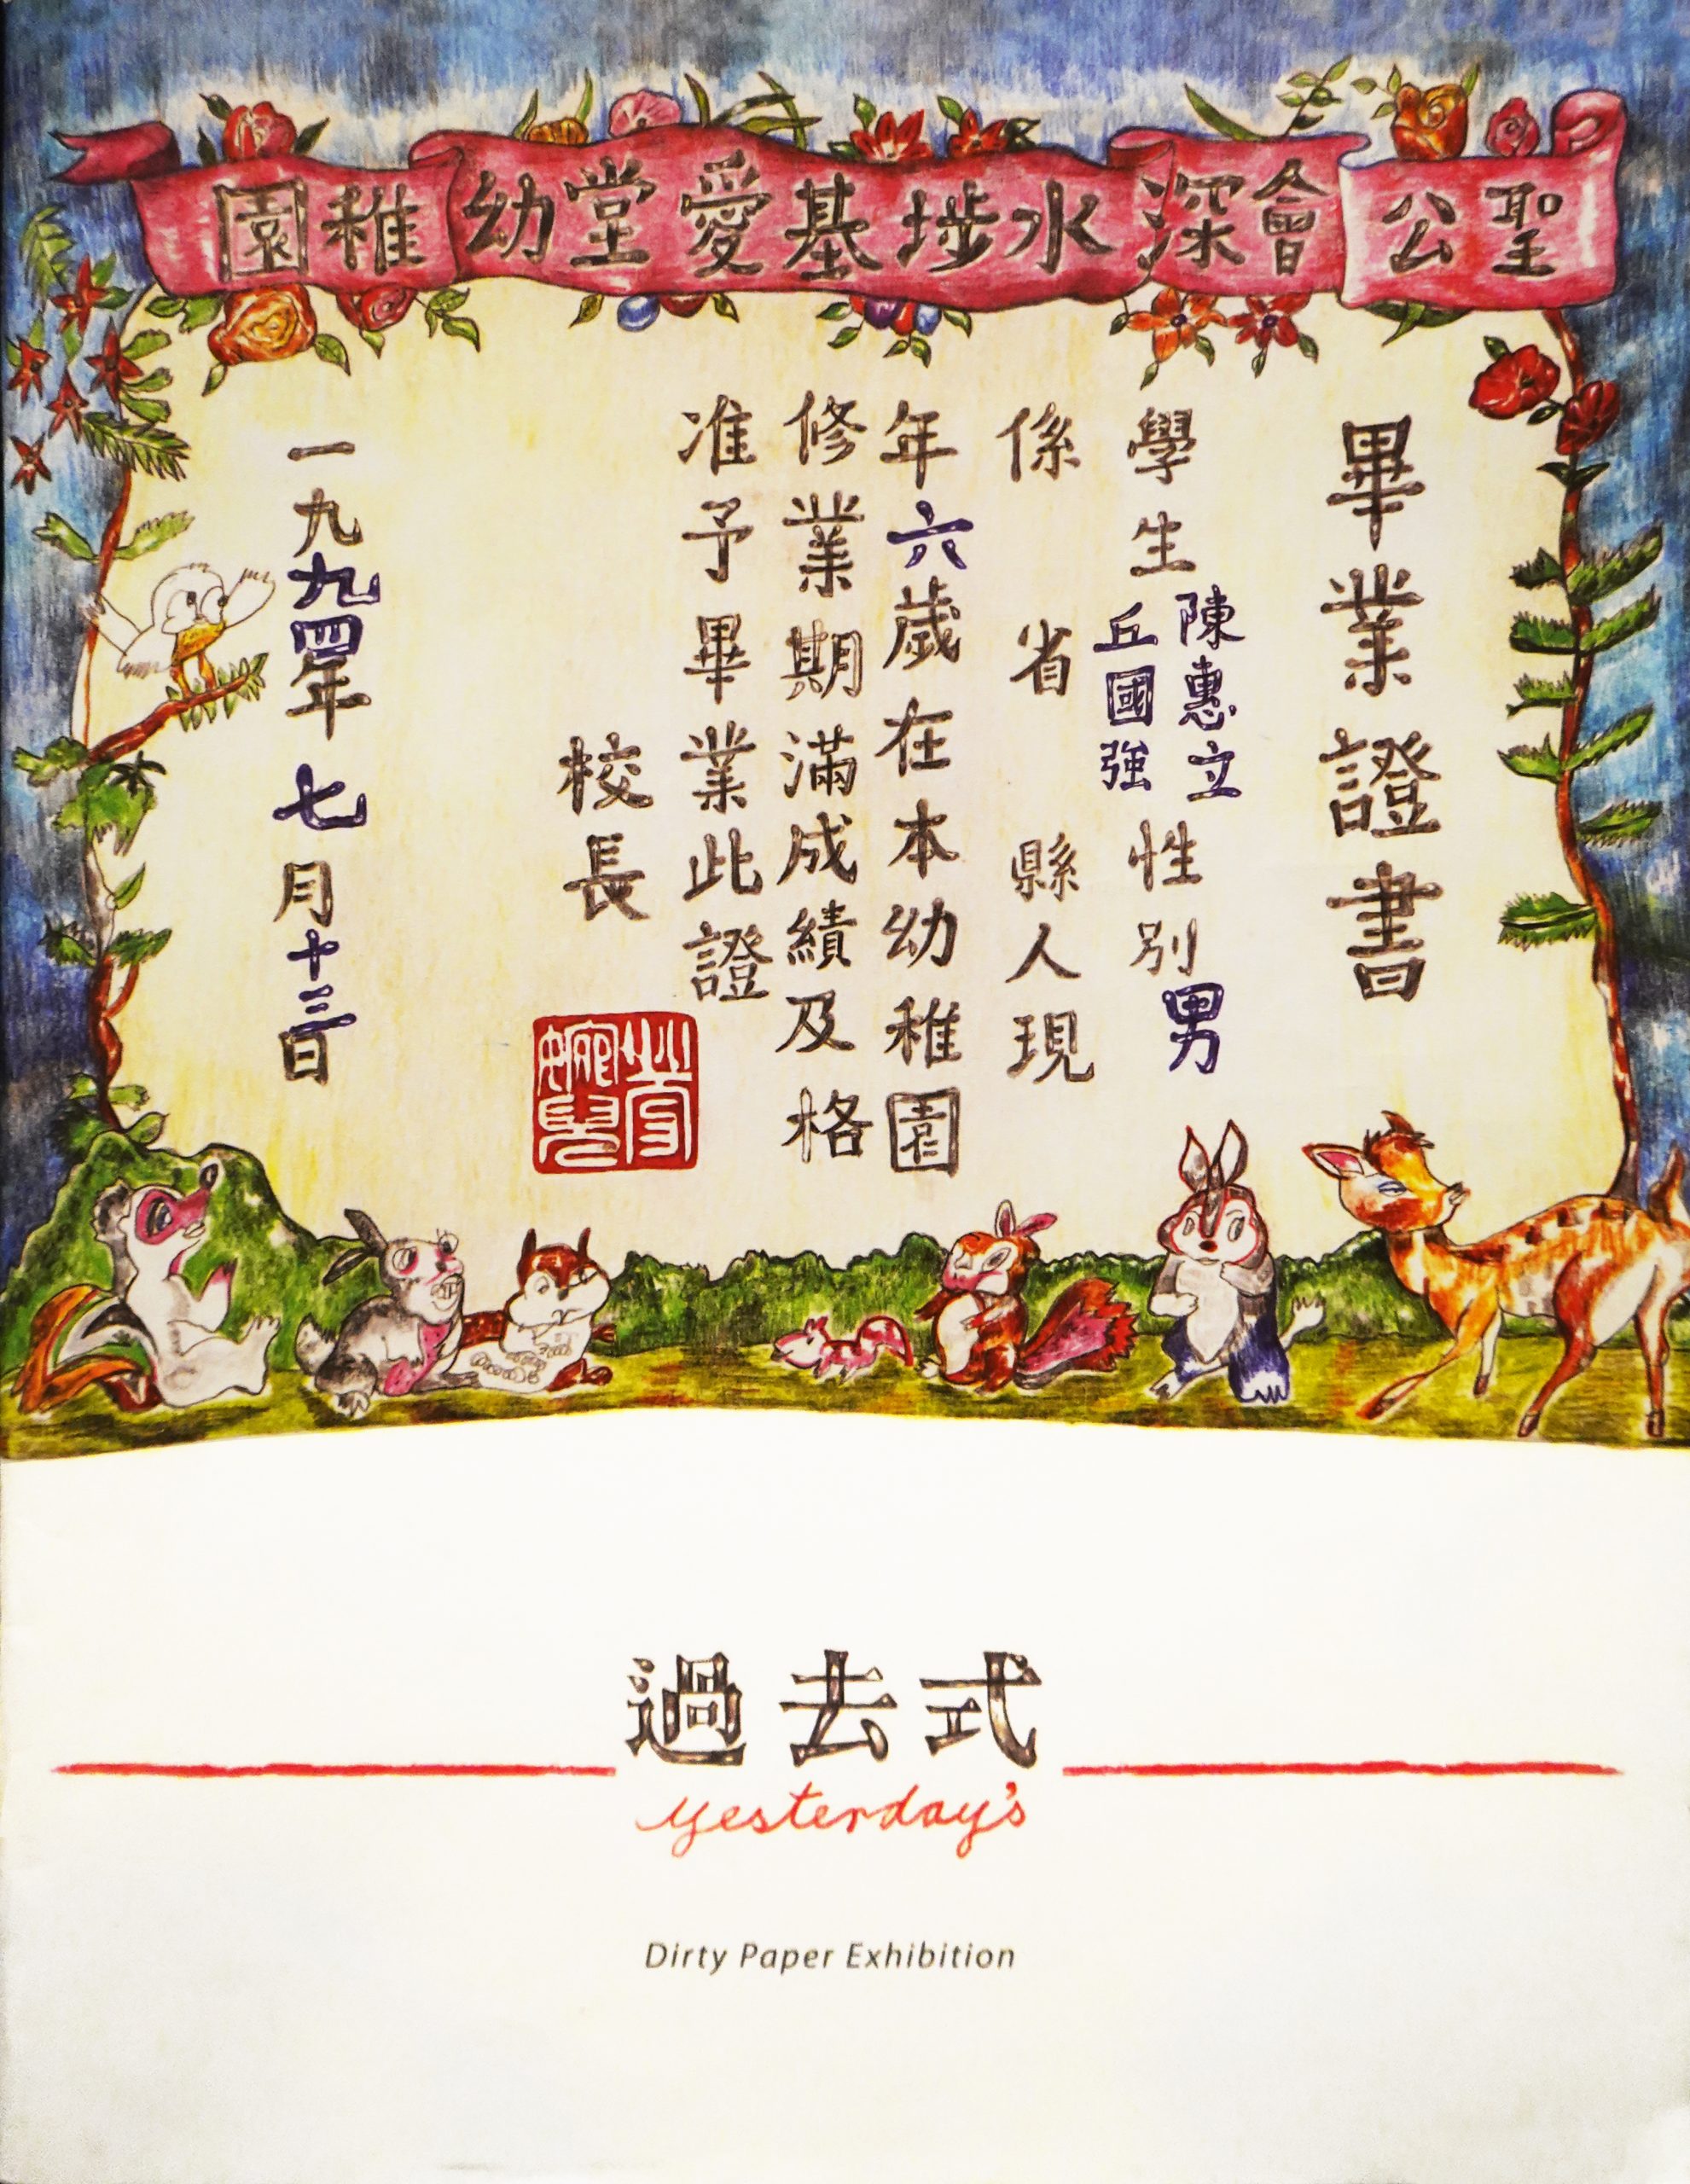 聖公會深水埗基愛堂幼稚園
畢業證書
學生陳惠立丘國強性別男
係省縣人現
年六歲在本幼稚園
修業期滿成績及格
准予畢業此證
校長
一九九四年七月十三日
過去式
yesterday's
Dirty Paper Exhibition